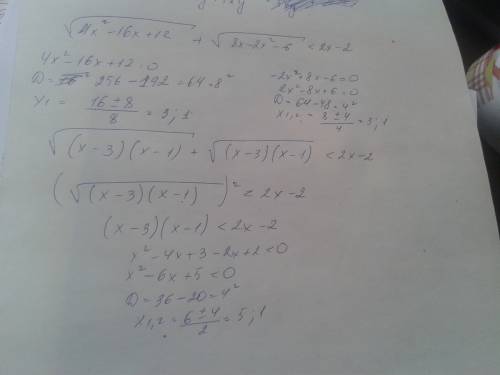 √4x²-16x+12 + √8x-2x²-6 < 2x-2
4x²-16x+12=0
D= 256-192=64=8²
x1 = (16±8)/8 = 3; 1
-2x²+8x-6=0
2x²-8x+6=0
D=64-48=4²
x1,2= (8±4)/4 = 3; 1
√(x-3)(x-1) + √(x-3)(x-1) < 2x-2
(√(x-3)(x-1))² < 2x-2
(x-3)(x-1) < 2x-2
x²-4x+3-2x+2<0
x²-6x+5<0
D=36-20=4²
x1,2= (6±4)/2 = 5; 1